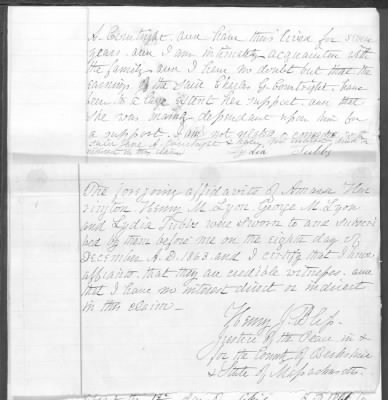 A. Courtright. and have thus lived for seven
years. and I am intimately acquainted with
the family and I have no doubt but that the
earnings of the said Charles G. Courtright. have
been to a large extent her support. and that
she was mainly dependant upon him for
a support. I am not
Lydia Tubbs
The foregoing affidavits of Amasa Har
rington Henry M. Lyon George M. Lyon
and Lydia Tubbs were sworn to and subscri
bed by them before me on the eighth day of
December A.D. 1863 and I certify that I know
affiants. that they are credible witnesses. and
that I have no interest direct or indirect
in this claim—
Henry J. Bliss.
Justice of the Peace in &
for the County of Berkshire
& State of Massachusetts.